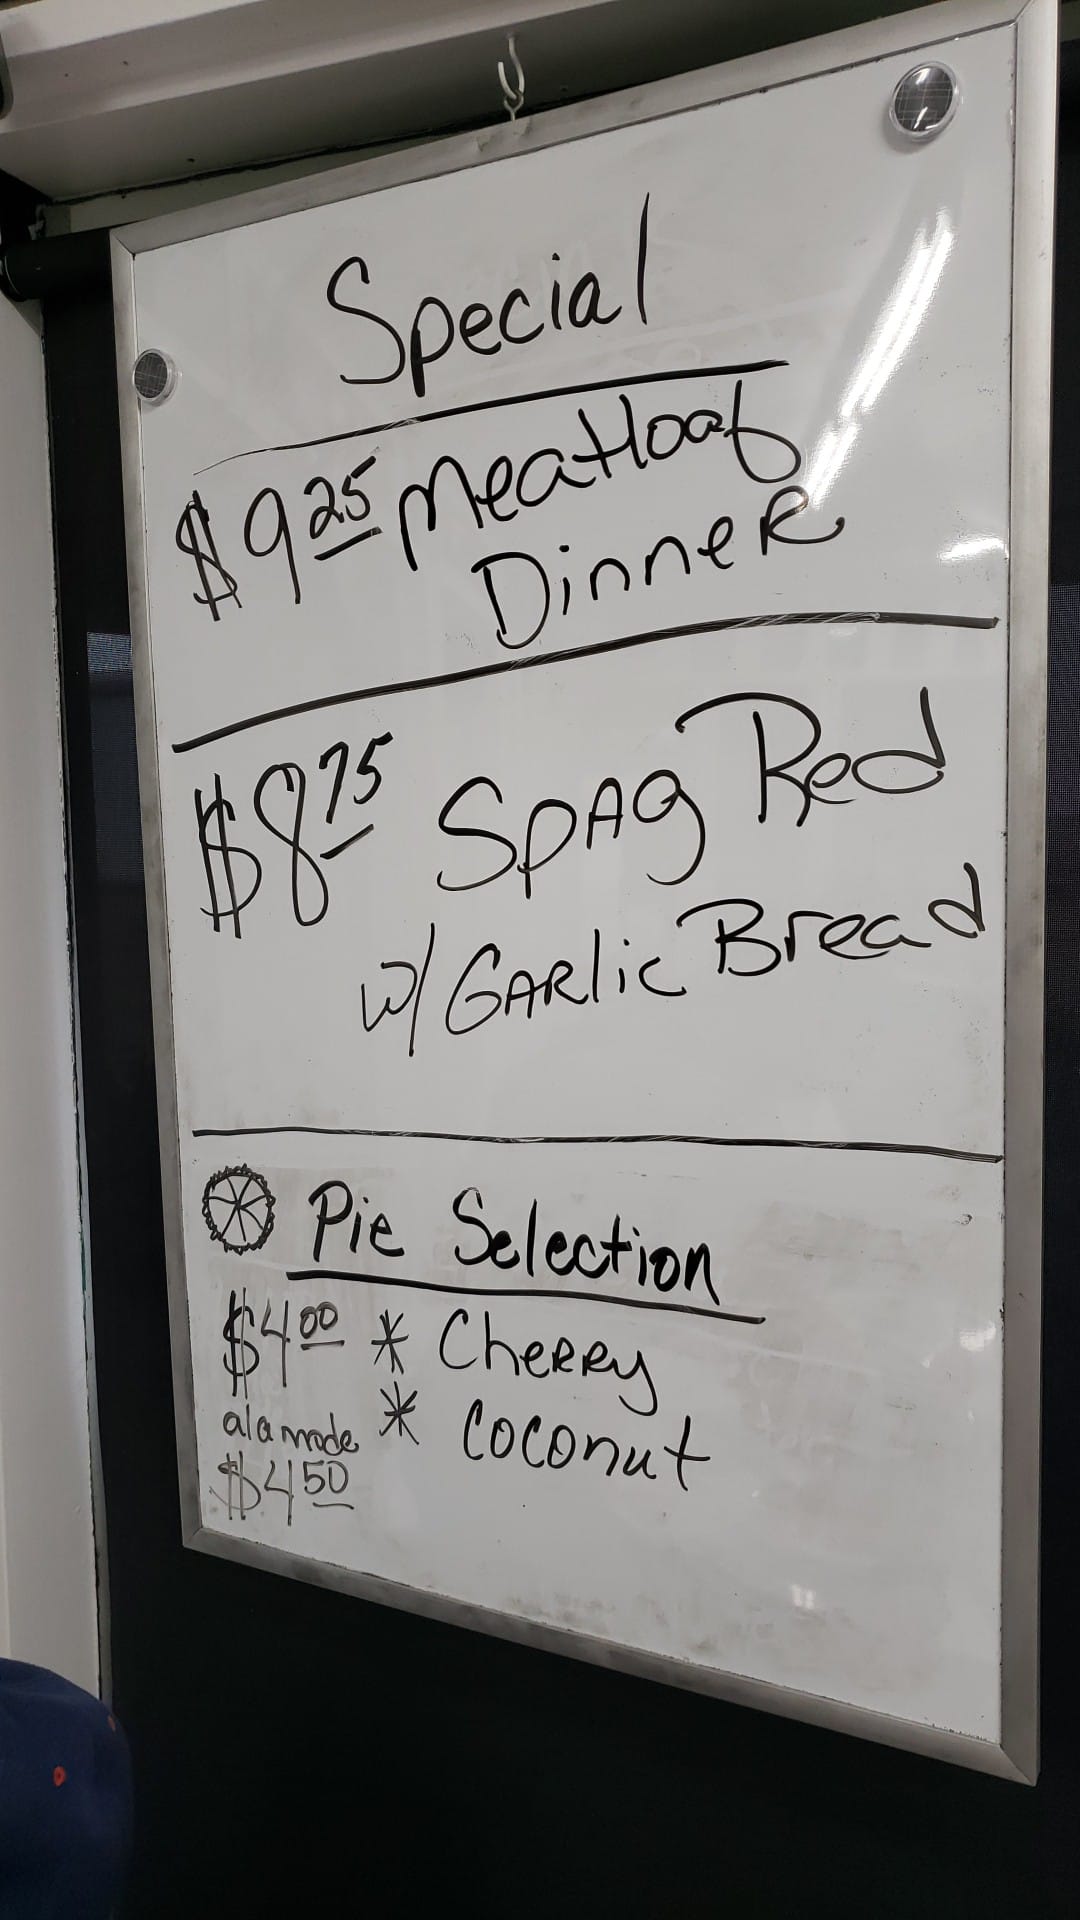 Special
$9.25 Meatloaf
Dinner
$8.75 Spag Red
w/ Garlic Bread
Pie Selection
$4.00 * Cherry
alamode * Coconut
$4.50